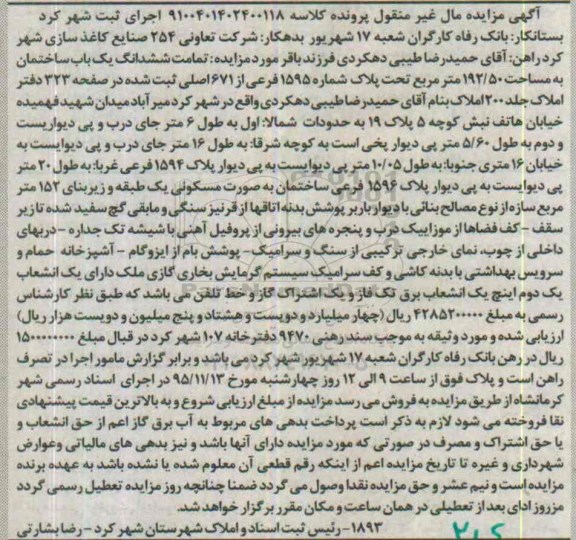 آگهی مزایده مال غیر منقول پرونده کلاسه ۹۱۰۰۴۰۱۴۰۲۴۰۰۱۱۸ اجرای ثبت شهر کرد
بستانکار: بانک رفاه کارگران شعبه ۱۷ شهریور بدهکار: شرکت تعاونی ۲۵۴ صنایع کاغذ سازی شهر
کرد راهن: آقای حمیدرضا طیبی دهکردی فرزند باقر مورد مزایده: تمامت ششدانگ یک باب ساختمان
به مساحت ۱۹۲/۵۰ متر مربع تحت پلاک شماره ۱۵۹۵ فرعی از ۶۷۱ اصلی ثبت شده در صفحه ۳۲۳ دفتر
املاک جلد ۲۰۰ املاک بنام آقای حمیدرضا طیبی دهکردی واقع در شهر کرد میر آباد میدان شهید فهمیده
خیابان هاتف نبش کوچه ۵ پلاک ۱۹ به حدودات شمالا: اول به طول ۶ متر جای درب و پی دیواریست
و دوم به طول ۵/۶۰ متر پی دیوار پخی است به کوچه شرقا: به طول ۱۶ متر جای درب و پی دیوایست به
خیابان ۱۶ متری جنوبا: به طول ۱۰/۰۵ متر پی دیوایست به پی دیوار پلاک ۱۵۹۴ فرعی غربا: به طول ۲۰ متر
پی دیوایست به پی دیوار پلاک ۱۵۹۶ فرعی ساختمان به صورت مسکونی یک طبقه و زیربنای ۱۵۲ متر
مربع سازه از نوع مصالح بنائی با دیوار باربر پوشش بدنه اتاقها از قرنیز سنگی و مابقی گچ سفید شده تا زیر
سقف – کف فضاها از موزاییک درب و پنجره های بیرونی از پروفیل آهنی با شیشه تک جداره – دربهای
داخلی از چوب، نمای خارجی ترکیبی از سنگ و سرامیک – پوشش بام از ایزوگام – آشپزخانه حمام و
سرویس بهداشتی با بدنه کاشی و کف سرامیک سیستم گرمایش بخاری گازی ملک دارای یک انشعاب
یک دوم اینچ یک انشعاب برق تک فاز و یک اشتراک گاز و خط تلفن می باشد که طبق نظر کارشناس
رسمی به مبلغ ۴۲۸۵۲۰۰۰۰۰ ریال (چهار میلیارد و دویست و هشتاد و پنج میلیون و دویست هزار ریال)
ارزیابی شده و مورد وثیقه به موجب سند رهنی ۹۴۷۰ دفتر خانه ۱۰۷ شهر کرد در قبال مبلغ ۱۵۰۰۰۰۰۰۰۰
ریال در رهن بانک رفاه کارگران شعبه ۱۷ شهریور شهر کرد می باشد و برابر گزارش مامور اجرا در تصرف
راهن است و پلاک فوق از ساعت ۹ الی ۱۲ روز چهارشنبه مورخ ۹۵/۱۱/۱۳ در اجرای اسناد رسمی شهر
کرمانشاه از طریق مزایده به فروش می رسد مزایده از مبلغ ارزیابی شروع و به بالاترین قیمت پیشنهادی
نقا فروخته می شود لازم به ذکر است پرداخت بدهی های مربوط به آب برق گاز اعم از حق انشعاب و
یا حق اشتراک و مصرف در صورتی که مورد مزایده دارای آنها باشد و نیز بدهی های مالیاتی وعوارض
شهرداری و غیره تا تاریخ مزایده اعم از اینکه رقم قطعی آن معلوم شده یا نشده باشد به عهده برنده
مزایده است و نیم عشر و حق مزایده نقدا وصول می گردد ضمنا چنانچه روز مزایده تعطیل رسمی گردد
مزروز ادای بعد از تعطیلی در همان ساعت و مکان مقرر برگزار خواهد شد.
۱۸۹۳- رئیس ثبت اسناد و املاک شهرستان شهر کرد – رضا بشارتی